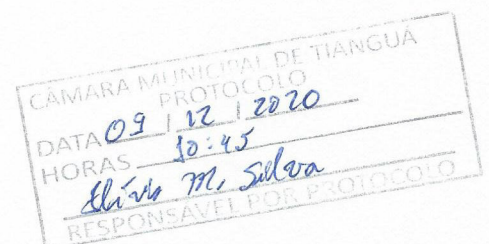 CÂMARA MUNICIPAL DE TIANGUÁ
PROTOCOLO
DATA 09 / 12 / 2020
HORAS 10:45
M. Silva
RESPONSÁVEL POR PROTOCOLO